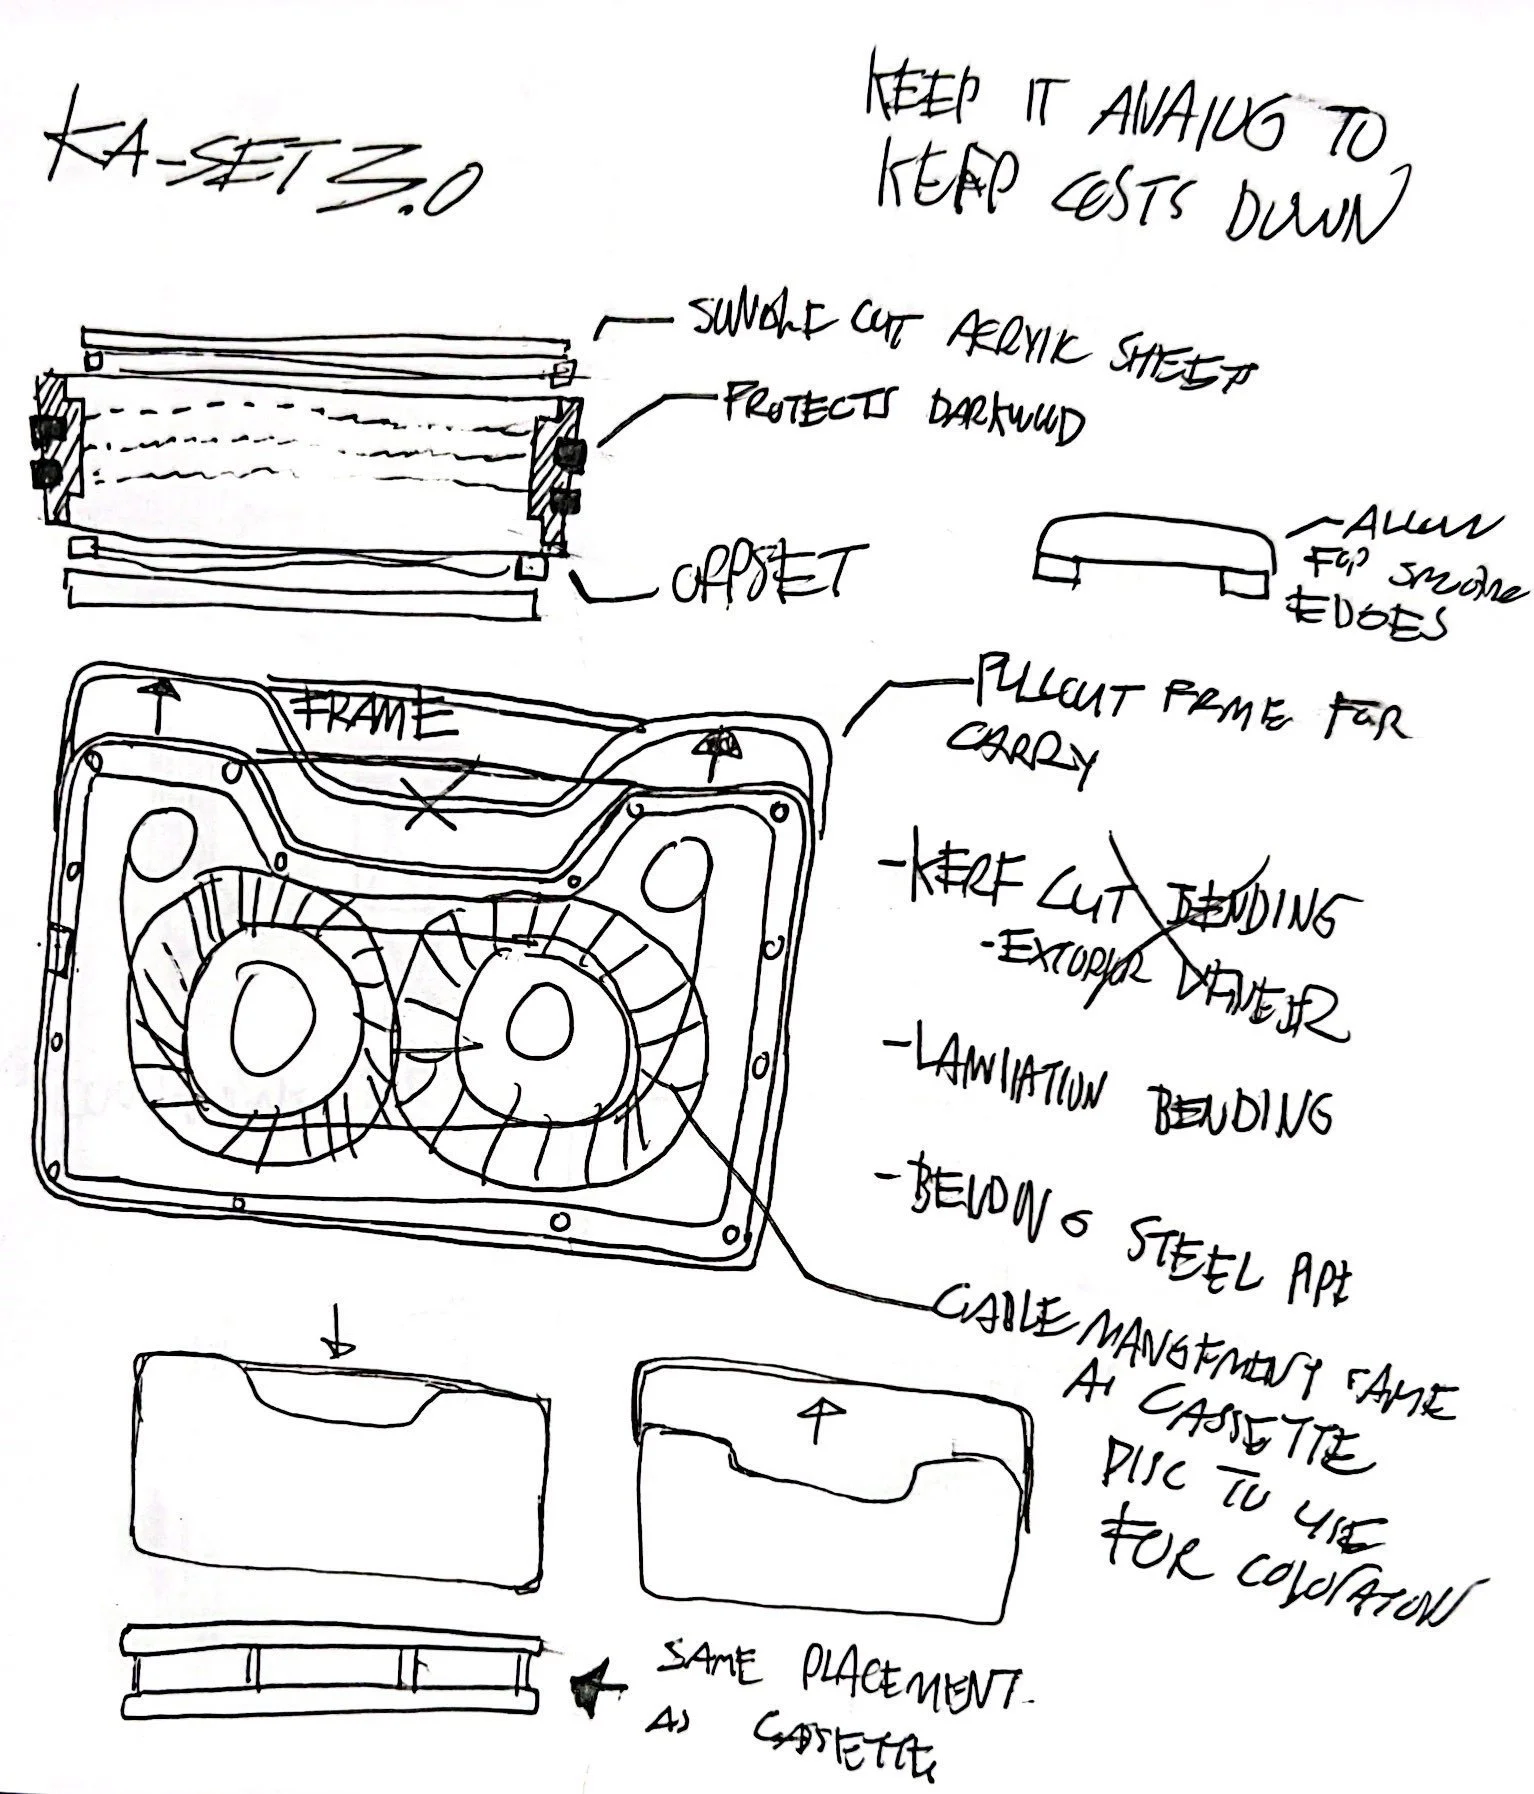 KA-SET 3.0
KEEP IT ANALOG TO
KEEP COSTS DOWN
CUT ACRYLIC SHEETS
PROTECTS
OFFSET
ALLOW
FOR
EDGES
FRAME
PULLOUT FRME FOR
CARRY
-KERF CUT BENDING
-EXTORIOR
-LAMIATION BENDING
-BENDING STEEL PIPE
CABLE MANGEMENT FAME
AS CASSETTE
DISC TO USE
FOR COLORATION
SAME PLACEMENT
AS CASSETTE